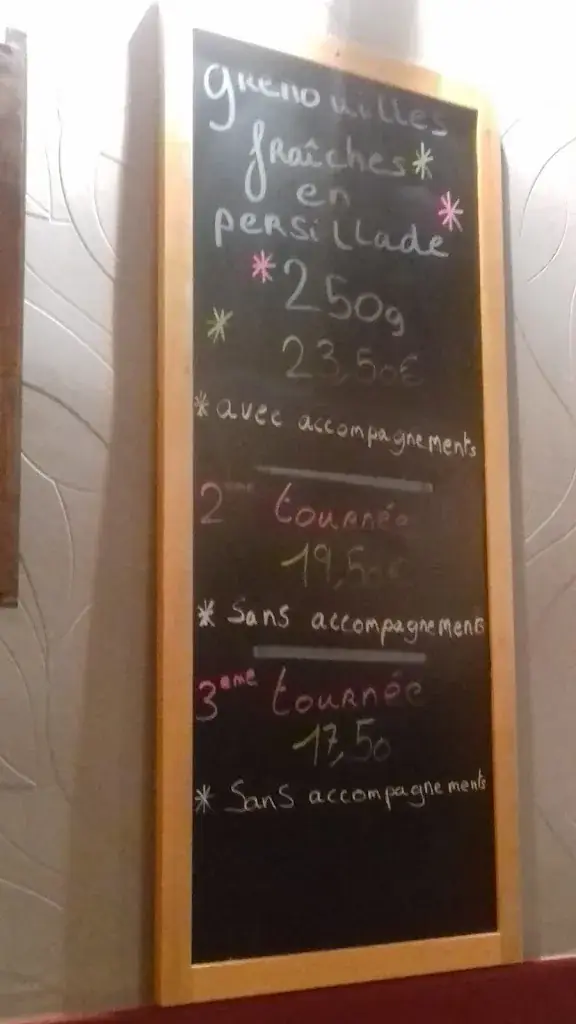 grenouilles
fraîches*
en *
persillade
*250g
* 23,50€
*avec accompagnements
2ème tournée
19,50€
* Sans accompagnements
3ème tournée
17,50
* Sans accompagnements